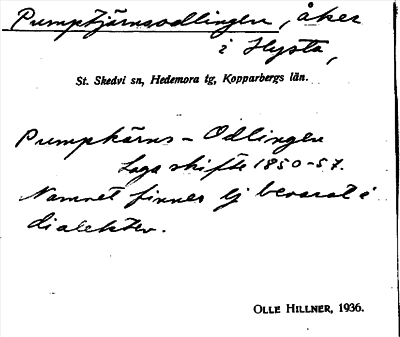 Pumptjärnsodlingen, åker
i Hysta,
St. Skedvi sn, Hedemora tg, Kopparbergs län.
Pumpkärns-Odlingen
Laga skifte 1850-57.
Namnet finnes ej bevarat i
dialekten.
OLLE HILLNER, 1936.